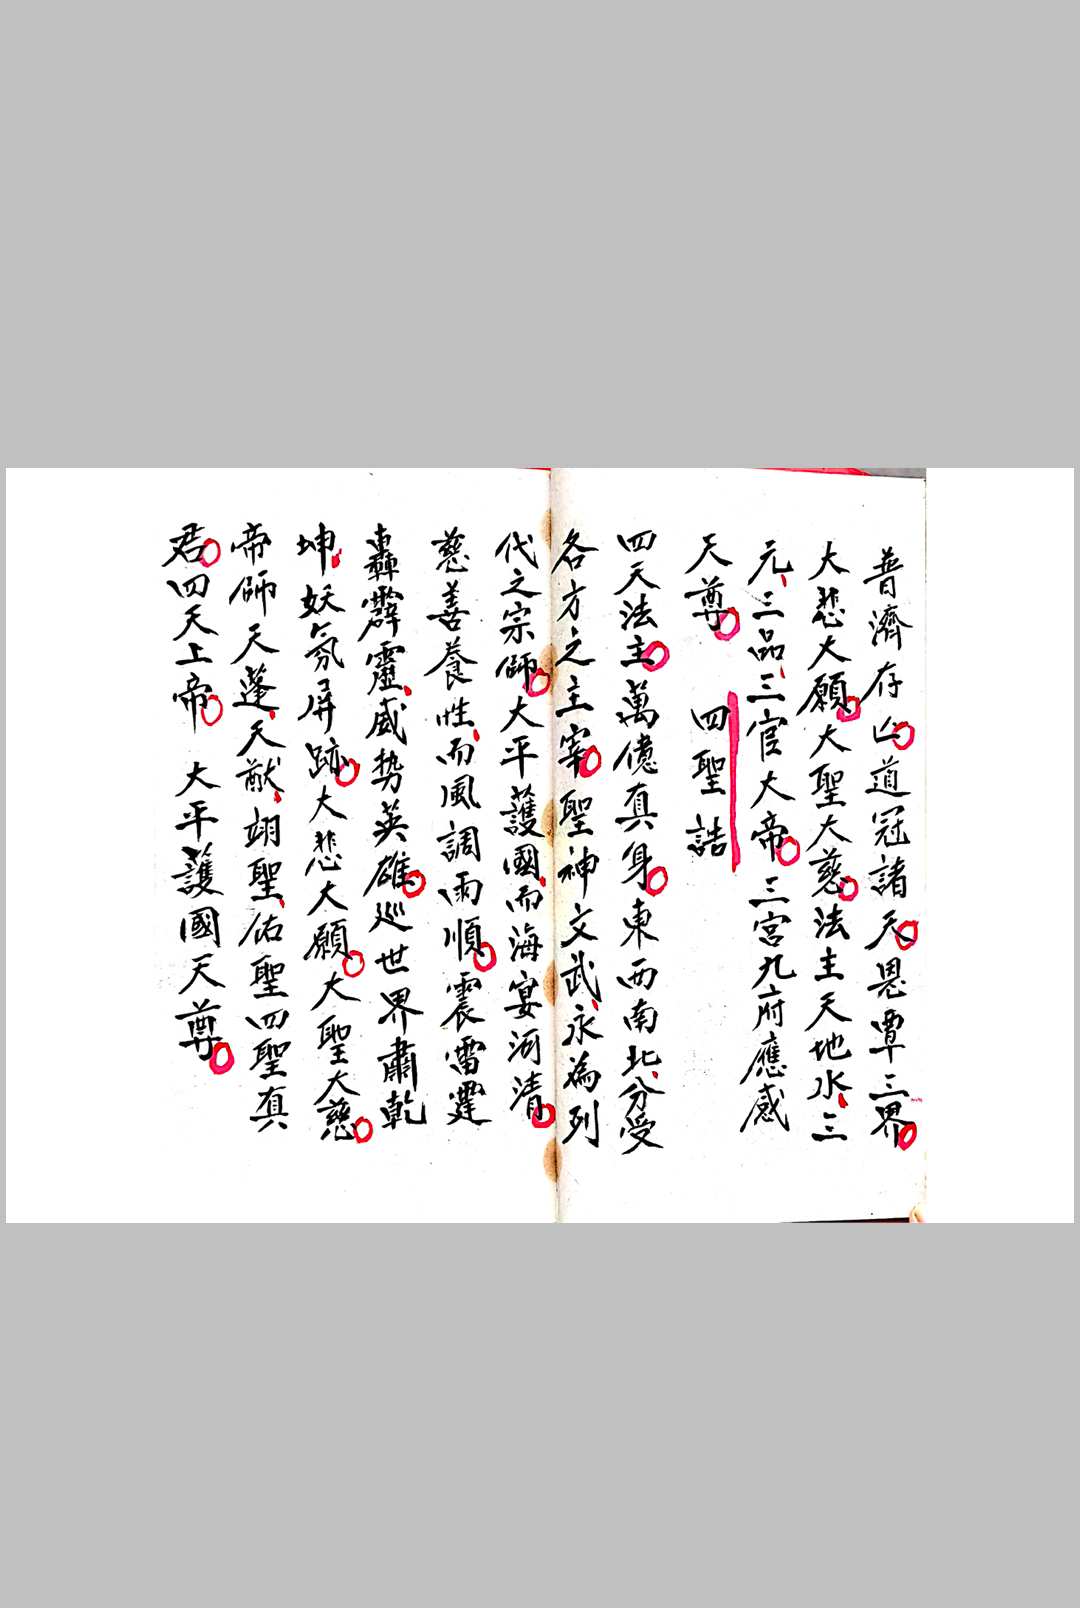 普濟存亡道冠諸天恩覃三界
大悲大願大聖大慈法主天地水三
元三品三官大帝三宮九府應感
天尊 四聖誥
四天法主萬億真身東西南北分受
各方之主宰聖神文武永為列
代之宗師大平護國而海宴河清
慈善養性而風調雨順震雷霆
轟霹靂威势英雄巡世界肅乾
坤妖氛屏跡大悲大願大聖大慈
帝師天蓬天猷翊聖佑聖四聖真
君四天上帝 大平護國天尊